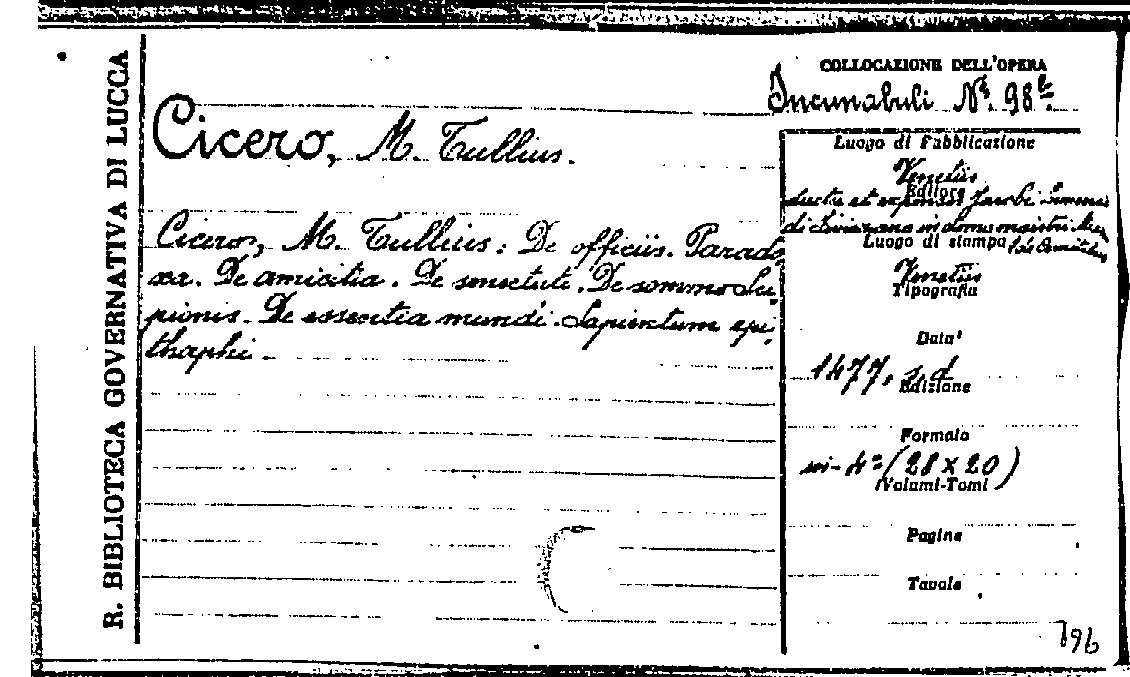 R. BIBLIOTECA GOVERNATIVA DI LUCCA
COLLOCAZIONE DELL'OPERA
Incunabuli Nº. 98
Cicero, M. Tullius.
Cicero, M. Tullius: De officiis. Parado
xa. De amicitia. De senectute. De somno Sci
pionis. De essentia mundi. Sapientum epi
thaphi.
Luogo di Pubblicazione
Venetiis
Editore
ductu et expensis Jacobi
in domo
Luogo di stampa
Venetiis
Tipografia
Data
1477, s. d.
Edizione
Formato
in-4º (28 x 20)
Volumi-Tomi
Pagine
Tavole
796